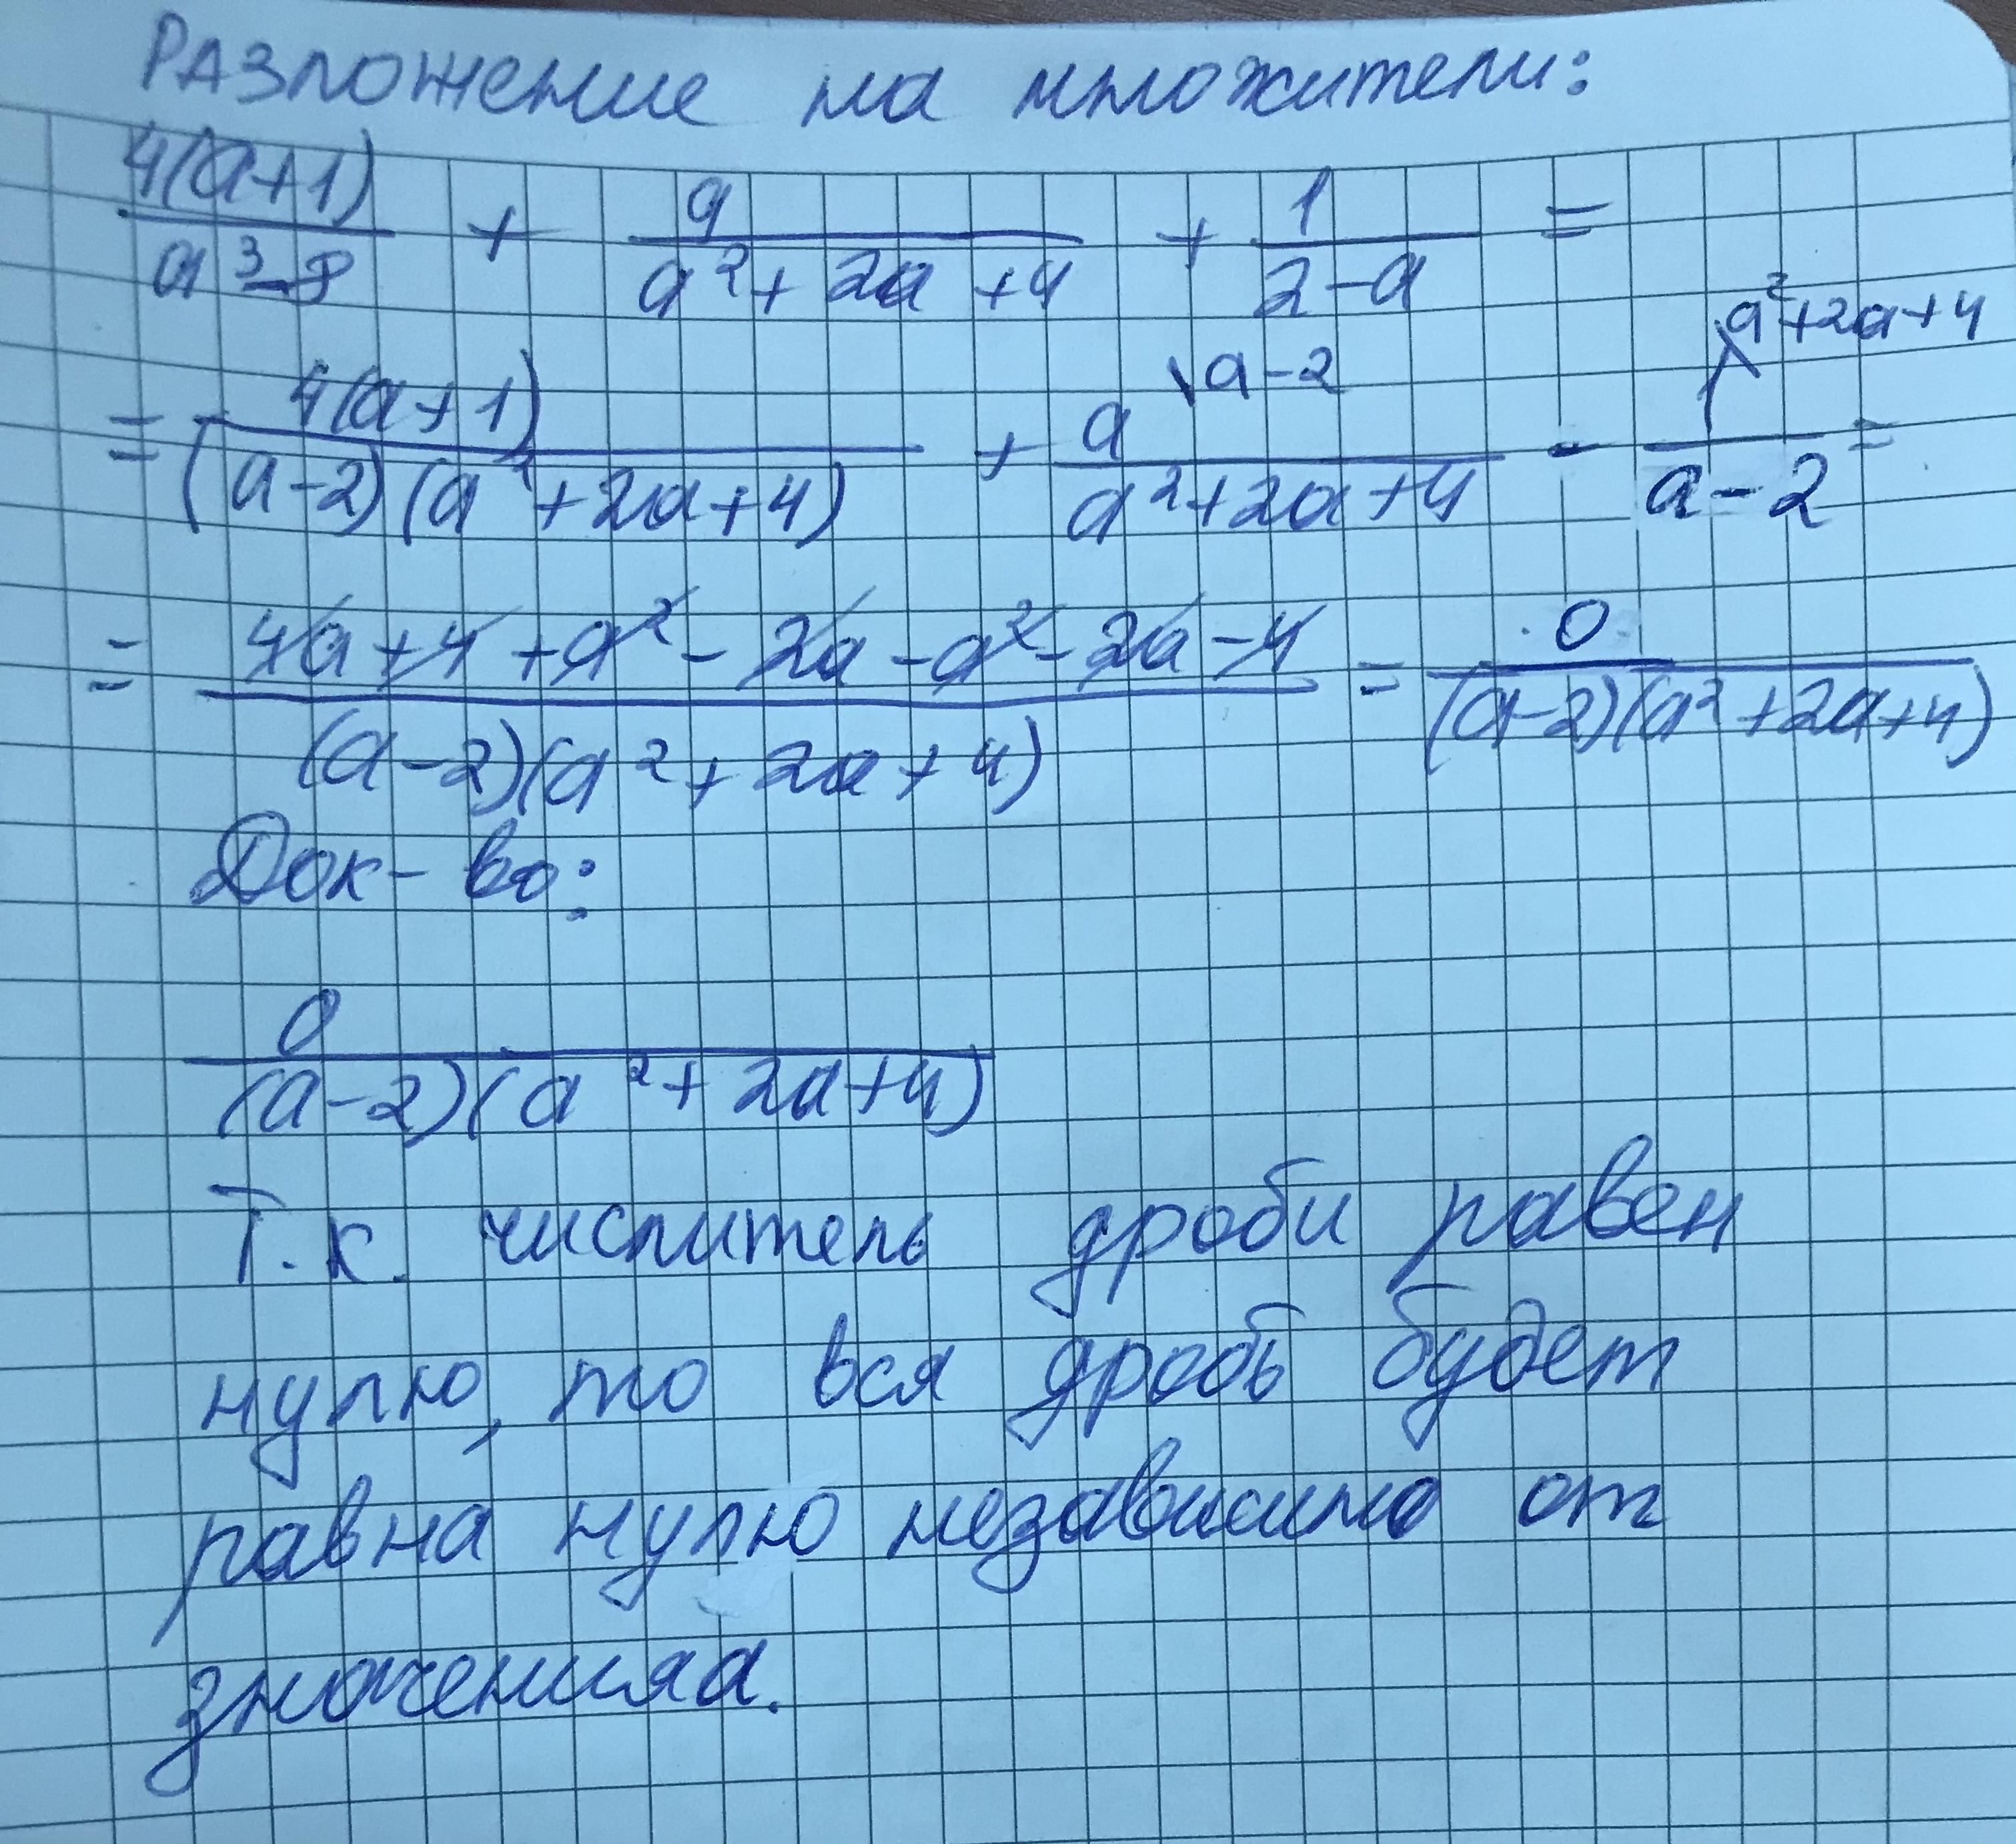 Разложение на множители:
4(a+1)/a³-8 + a/a²+2a+4 + 1/2-a =
= 4(a+1)/(a-2)(a²+2a+4) + a\a-2/a²+2a+4 - 1\a²+2a+4/a-2 =
= 4a+4+a²-2a-a²-2a-4/(a-2)(a²+2a+4) = 0/(a-2)(a²+2a+4)
Док-во:
0/(a-2)(a²+2a+4)
Т.к. числитель дроби равен
нулю, то вся дробь будет
равна нулю независимо от
значения a.